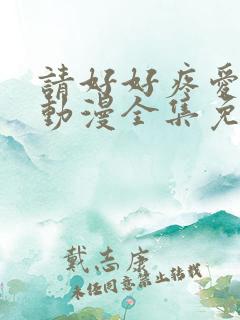 請好好疼愛
動漫全集免
戴志康
未经同意禁止转载